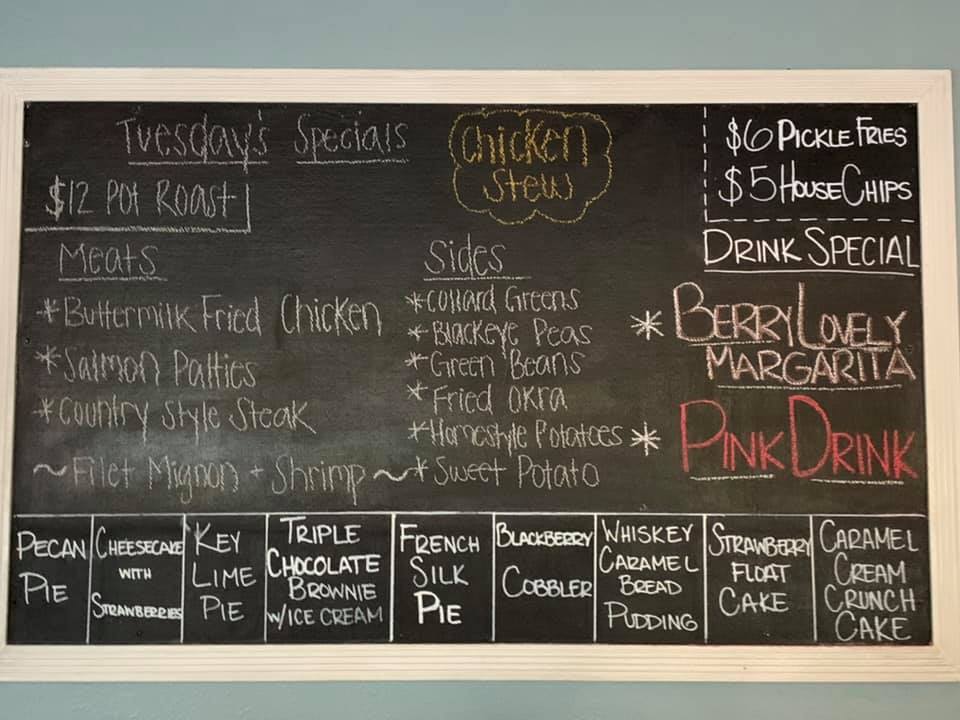 Tuesday's Specials
$12 Pot Roast
Chicken
Stew
$6 PICKLE FRIES
$5 HOUSE CHIPS
Meats
* Buttermilk Fried Chicken
* Salmon Patties
* Country Style Steak
~ Filet Mignon + Shrimp ~
Sides
* Collard Greens
* Blackeye Peas
* Green Beans
* Fried Okra
* Homestyle Potatoes
* Sweet Potato
DRINK SPECIAL
* BERRY LOVELY
MARGARITA
* PINK DRINK
PECAN
PIE
CHEESECAKE
WITH
STRAWBERRIES
KEY
LIME
PIE
TRIPLE
CHOCOLATE
BROWNIE
W/ICE CREAM
FRENCH
SILK
PIE
BLACKBERRY
COBBLER
WHISKEY
CARAMEL
BREAD
PUDDING
STRAWBERRY
FLOAT
CAKE
CARAMEL
CREAM
CRUNCH
CAKE